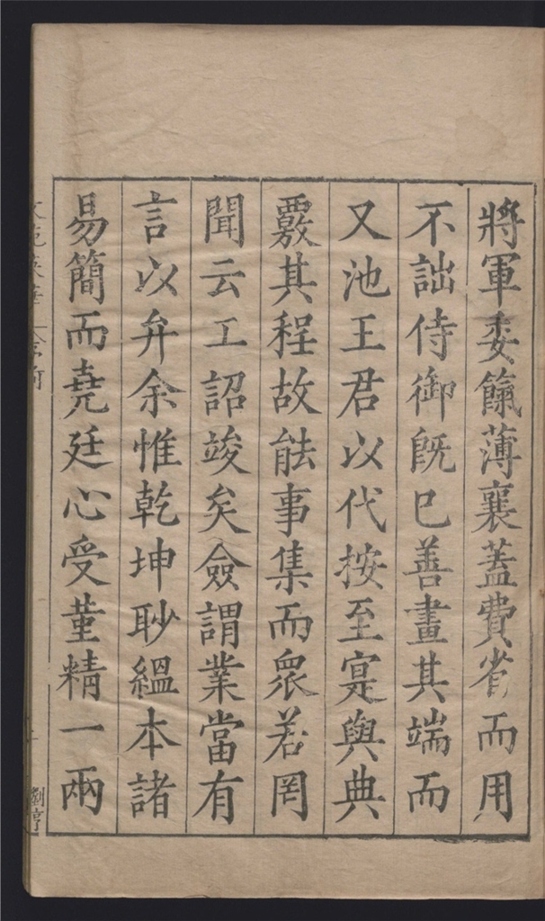 將軍委餼薄襄蓋費省而用
不詘侍御旣巳善畫其端而
又池王君以代按至寔與典
覈其程故能事集而衆若罔
聞云工詔竣矣僉謂業當有
言以弁余惟乾坤眇縕本諸
易簡而堯廷心受董精一兩
文苑英華